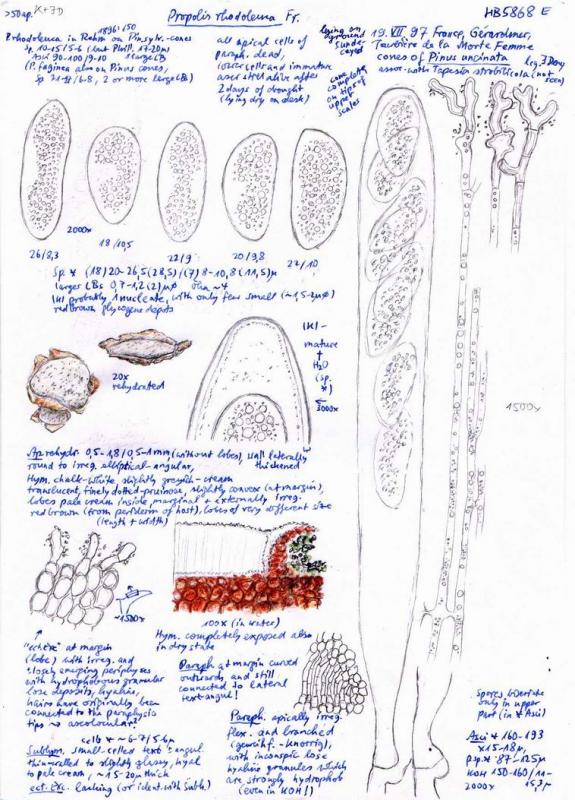 >50 ap. K+7D
Propolis rhodoleuca Fr.
HB5868 E
P. rhodoleuca in Rehm on Pin. sylv.-cones
1896:150
Sp. 10-15/5-6 (but Phill. 17-20µ)
Asci 90-100/9-10 1 large LB
(P. faginea also on Pinus cones,
Sp. 21-27/6-8, 2 or more large LBs)
all apical cells of
paraph. dead,
lower cells and immature
asci still alive after
2 days of drought
(lying dry on desk)
lying on
ground
undecayed
cone
completely
on tips of
upper
scales
19. VII. 97 France, Gérardmer,
Tourbière de la Morte Femme
cones of Pinus uncinata
assoc. with Tapesia strobilicola (not
seen)
2000x
26/8,3
18/10,5
22/9
20/9,8
22/10
Sp. * (18)20-26,5(28,5)/(7)8-10,8(11,5)µ
larger LBs 0,7-1,2(2)µø
IKI probably 1 nucleate, with only few small (~1,5-2µø)
redbrown glycogene depots
20x
rehydrated
IKI-
mature
†
H2O
(sp.
*)
3000x
1500x
Ap. rehydr. 0,5-1,8/0,5-1mm (without lobes), wall laterally
thickened
round to irreg. elliptical-angular,
Hym. chalk-white, slightly greyish-cream
translucent, finely dotted-pruinose, slightly convex (at margin),
lobes pale cream inside, marginal + externally irreg.
red brown (from periderm of host), lobes of very different size
(length + width)
~1500x
100x (in water)
Hym. completely exposed also
in dry state
"ectexc" at margin
(lobe) with irreg. and
closely emerging periphyses
with hydrophobous granular
lose deposits, hyaline,
hairs have originally been
connected to the paraphysis
tips → ascolocular!
Paraph. at margin curved
outwards and still
connected to lateral
text. angul!
cells * ~6-7/5-6µ
Subhym. small-celled text. angul.
thin-walled to slightly glassy, hyal.
to pale cream, ~15-20µ thick
ect. exc. lacking (or ident. with subh.)
Paraph. apically irreg.
flex. and branched
(geweihf.-knorrig),
with inconspic. lose
hyaline granules which
are strongly hydrophob
(even in KOH!)
Spores biseriate
only in upper
part (in * Asci)
Asci * 160-193
x15-18µ,
p.p. * 87-125µ
KOH 150-160/11-
15,3µ
2000x